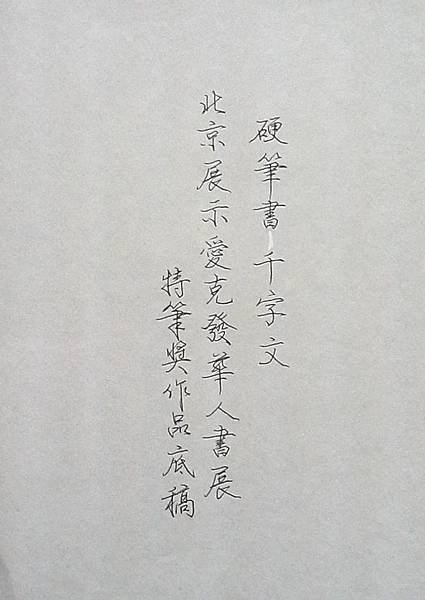 硬筆書千字文
北京展示愛克發華人書展
特筆獎作品底稿